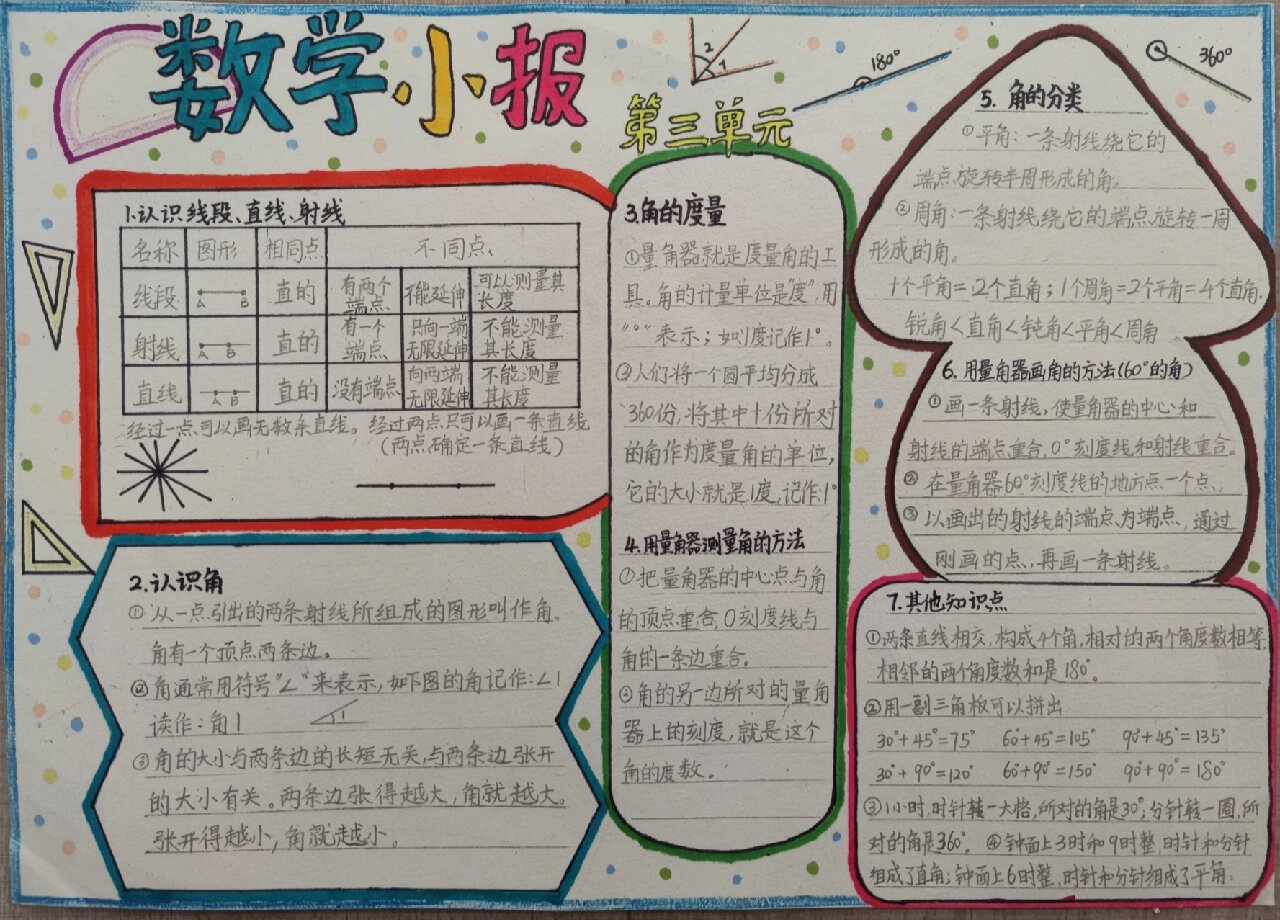 数学小报
第三单元
2
1
180°
360°
1.认识线段、直线、射线
名称 图形 相同点 不同点
线段 A B 直的 有两个端点 不能延伸 可以测量其长度
射线 A B 直的 有一个端点 只向一端无限延伸 不能测量其长度
直线 A B 直的 没有端点 向两端无限延伸 不能测量其长度
经过一点可以画无数条直线。经过两点只可以画一条直线
(两点确定一条直线)
2.认识角
①从一点引出的两条射线所组成的图形叫作角。
角有一个顶点两条边。
②角通常用符号"∠"来表示,如下图的角记作:∠1
读作:角1
1
③角的大小与两条边的长短无关,与两条边张开
的大小有关。两条边张得越大,角就越大。
张开得越小,角就越小。
3.角的度量
①量角器就是度量角的工
具。角的计量单位是"度",用
"°"表示;如1度记作1°。
②人们将一个圆平均分成
360份,将其中1份所对
的角作为度量角的单位,
它的大小就是1度,记作:1°
4.用量角器测量角的方法
①把量角器的中心点与角
的顶点重合,0刻度线与
角的一条边重合。
②角的另一边所对的量角
器上的刻度,就是这个
角的度数。
5.角的分类
①平角:一条射线绕它的
端点旋转半周形成的角。
②周角:一条射线绕它的端点旋转一周
形成的角。
1个平角=2个直角;1个周角=2个平角=4个直角
锐角<直角<钝角<平角<周角
6.用量角器画角的方法(60°的角)
①画一条射线,使量角器的中心和
射线的端点重合,0°刻度线和射线重合。
②在量角器60°刻度线的地方点一个点。
③以画出的射线的端点为端点,通过
刚画的点,再画一条射线。
7.其他知识点
①两条直线相交,构成4个角,相对的两个角度数相等,
相邻的两个角度数和是180°
②用一副三角板可以拼出
30°+45°=75° 60°+45°=105° 90°+45°=135°
30°+90°=120° 60°+90°=150° 90°+90°=180°
③1小时,时针转一大格,所对的角是30°;分针转一圈,所
对的角是360°。④钟面上3时和9时整,时针和分针
组成了直角;钟面上6时整,时针和分针组成了平角.